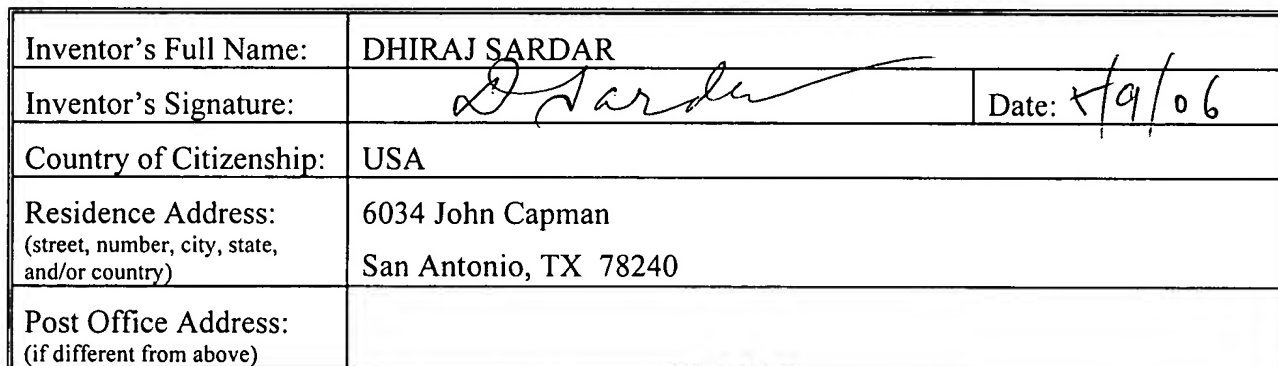 Inventor's Full Name: DHIRAJ SARDAR
Inventor's Signature: D Sardar Date: 5/9/06
Country of Citizenship: USA
Residence Address: 6034 John Capman
(street, number, city, state,
and/or country) San Antonio, TX 78240
Post Office Address:
(if different from above)